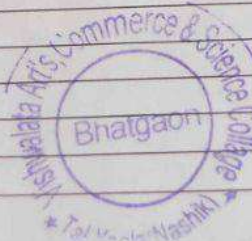 Vishwalata Art's, Commerce & Science Collage
Bhatgaon
★ Tal. Yeola (Nashik) ★